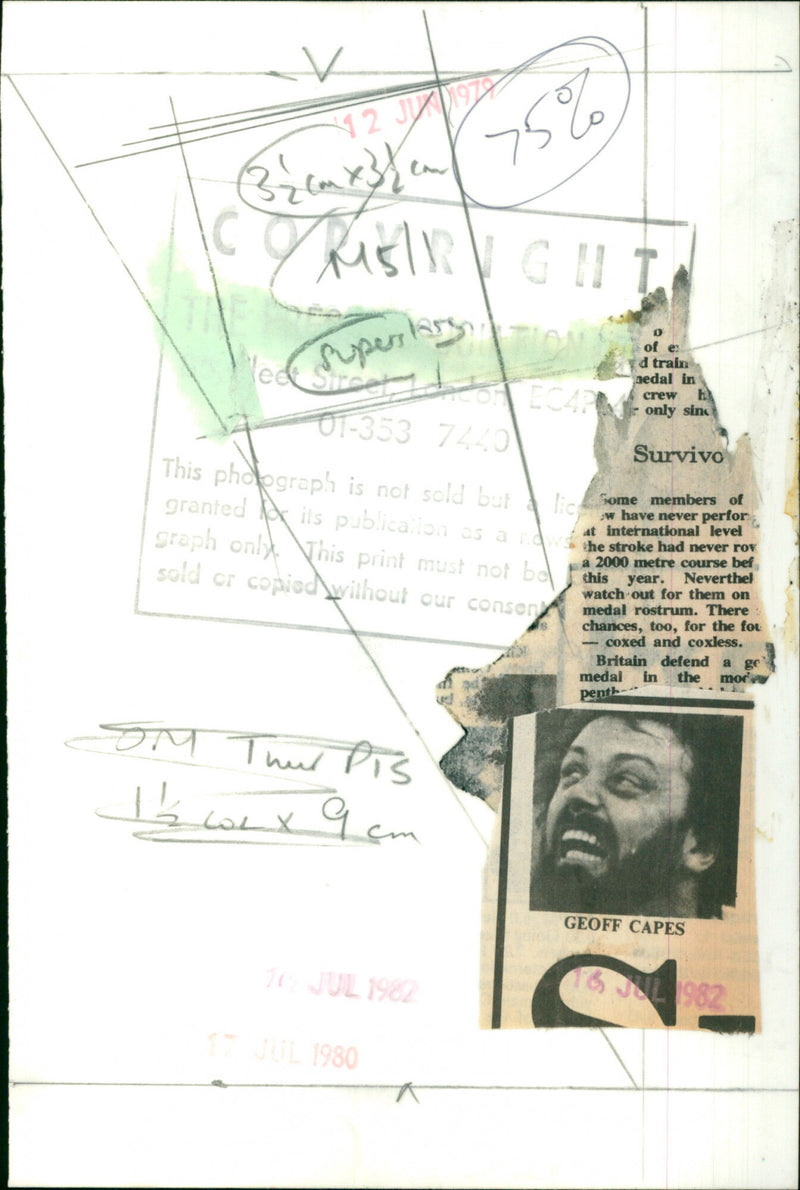 12 JUN 1979
75%
3½ cm x 3½ cm
COPYRIGHT
M5/1
THE PRESS ASSOCIATION
Superstars
Fleet Street, London, EC4P
01-353 7440
This photograph is not sold but a lic
granted for its publication as a news
graph only. This print must not be
sold or copied without our consent
of e
d train
medal in
crew h
only sinc
Survivo
Some members of
w have never perfor
at international level
the stroke had never rov
a 2000 metre course bef
this year. Neverthel
watch out for them on
medal rostrum. There
chances, too, for the fou
— coxed and coxless.
Britain defend a go
medal in the mod
penth
SM Thur P15
1½ col x 9 cm
GEOFF CAPES
16 JUL 1982
S
16 JUL 1982
17 JUL 1980